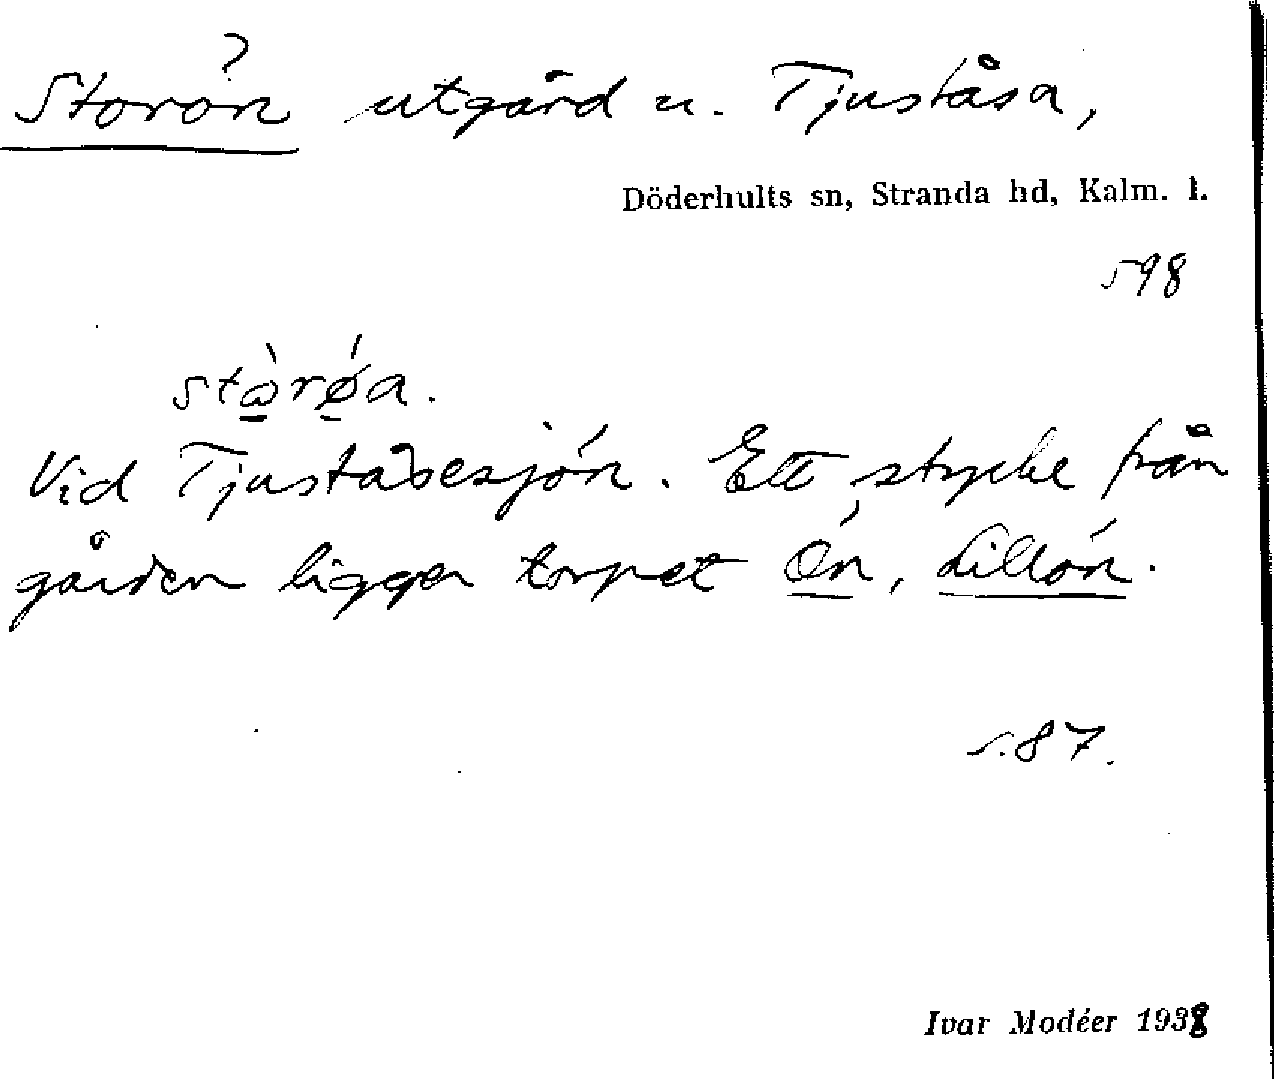 Storön utgård u. Tjuståsa,
Döderhults sn, Stranda hd, Kalm. l.
598
stɷ̀rǿa.
Vid Tjuståsesjön. Ett stycke från
gården ligger torpet Ön, Lillön.
s. 87.
Ivar Modéer 1938